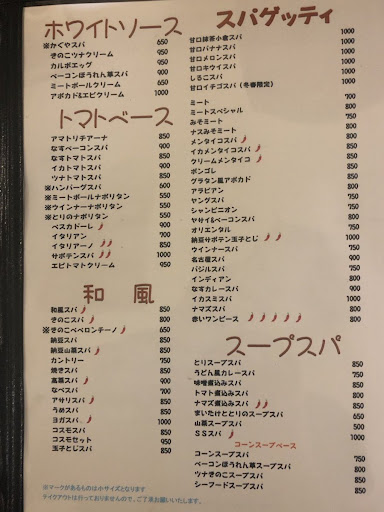 ホワイトソース
※かぐやスパ 650
きのこツナクリーム 950
カルボエッグ 950
ベーコンほうれん草スパ 900
ミートボールクリーム 650
アボカド&エビクリーム 1000
トマトベース
アマトリチアーナ 850
なすベーコンスパ 900
なすトマトスパ 850
イカトマトスパ 900
ツナトマトスパ 850
※ハンバーグスパ 600
※ミートボールナポリタン 550
※ウインナーナポリタン 550
※とりのナポリタン 550
ペスカドーレ 900
イタリアン 700
イタリアーノ 850
サボテンスパ 1000
エビトマトクリーム 950
和風
和風スパ 850
きのこスパ 800
※きのこペペロンチーノ 650
納豆スパ 800
納豆山菜スパ 850
カントリー 750
焼きスパ 850
高菜スパ 900
なべスパ 700
アサリスパ 850
うめスパ 850
ヨガスパ 1000
コスモスパ 850
コスモセット 950
玉子とじスパ 850
※マークがあるものは小サイズとなります
テイクアウトは行っておりませんので、ご了承お願いします。
スパゲッティ
甘口抹茶小倉スパ 1000
甘口バナナスパ 1000
甘口メロンスパ 1000
甘口キウイスパ 1000
しるこスパ 1000
甘口イチゴスパ (冬春限定) 1000
ミート 700
ミートスペシャル 800
みそミート 750
ナスみそミート 800
メンタイコスパ
イカメンタイコスパ
クリームメンタイコ
ボンゴレ
グラタン風アボカド
アラビアン
ヤングスパ
シャンピニオン
ヤサイ&ベーコンスパ
オリエンタル
納豆サボテン玉子とじ
ウインナースパ
名古屋スパ
バジルスパ
インディアン
なすカレースパ
イカスミスパ
ナマズスパ
赤いワンピース
スープスパ
とりスープスパ 850
うどん風カレースパ 750
味噌煮込みスパ 850
トマト煮込みスパ 800
ナマズ煮込みスパ 850
まいたけととりのスープスパ 650
山菜スープスパ 500
SSスパ 1000
コーンスープベース
コーンスープスパ 750
ベーコンほうれん草スープスパ 800
ツナきのこスープスパ 850
シーフードスープスパ 850